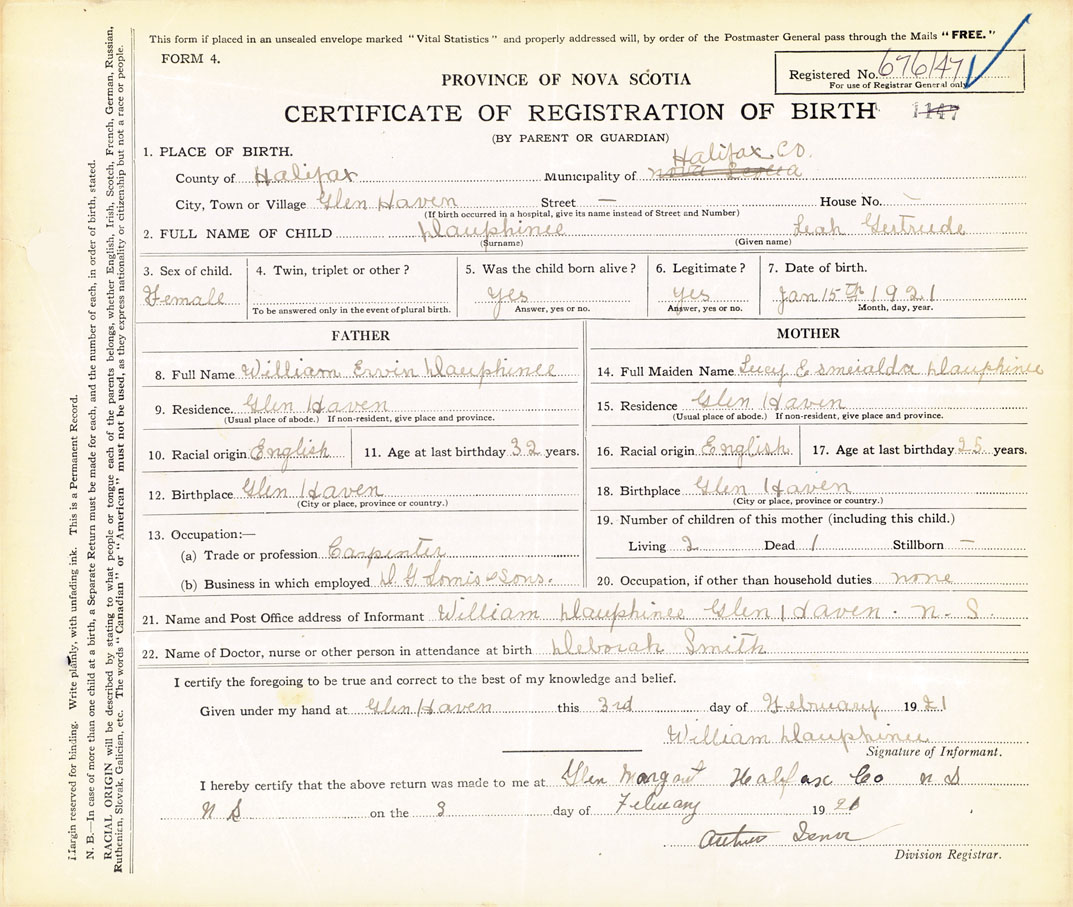 This form if placed in an unsealed envelope marked "Vital Statistics" and properly addressed will, by order of the Postmaster General pass through the Mails "FREE."
FORM 4.
PROVINCE OF NOVA SCOTIA
Registered No. 676/47
For use of Registrar General only
CERTIFICATE OF REGISTRATION OF BIRTH 1147
(BY PARENT OR GUARDIAN)
1. PLACE OF BIRTH. Halifax Co.
County of Halifax Municipality of Nova Scotia
City, Town or Village Glen Haven Street — House No.
(If birth occurred in a hospital, give its name instead of Street and Number)
2. FULL NAME OF CHILD Dauphinee Leah Gertrude
(Surname) (Given name)
3. Sex of child. 4. Twin, triplet or other? 5. Was the child born alive? 6. Legitimate? 7. Date of birth.
Female Yes Yes Jan 15th 1921
To be answered only in the event of plural birth. Answer, yes or no. Answer, yes or no. Month, day, year.
FATHER MOTHER
8. Full Name William Ervin Dauphinee 14. Full Maiden Name Lucy Esmeralda Dauphinee
9. Residence. Glen Haven 15. Residence Glen Haven
(Usual place of abode.) If non-resident, give place and province. (Usual place of abode.) If non-resident, give place and province.
10. Racial origin English 11. Age at last birthday 32 years. 16. Racial origin English 17. Age at last birthday 25 years.
12. Birthplace Glen Haven 18. Birthplace Glen Haven
(City or place, province or country.) (City or place, province or country.)
13. Occupation:— 19. Number of children of this mother (including this child.)
(a) Trade or profession Carpenter Living 2 Dead 1 Stillborn —
(b) Business in which employed & Sons. 20. Occupation, if other than household duties none
21. Name and Post Office address of Informant William Dauphinee Glen Haven. N. S.
22. Name of Doctor, nurse or other person in attendance at birth Deborah Smith
I certify the foregoing to be true and correct to the best of my knowledge and belief.
Given under my hand at Glen Haven this 3rd day of February 1921
William Dauphinee
Signature of Informant.
I hereby certify that the above return was made to me at Glen Margaret Halifax Co N S
N S on the 3 day of February 1921
Arthur
Division Registrar.
Margin reserved for binding. Write plainly, with unfading ink. This is a Permanent Record.
N. B.—In case of more than one child at a birth, a Separate Return must be made for each, and the number of each, in order of birth, stated.
RACIAL ORIGIN will be described by stating to what people or tongue each of the parents belongs, whether English, Irish, Scotch, French, German, Russian,
Ruthenian, Slovak, Galician, etc. The words "Canadian" or "American" must not be used, as they express nationality or citizenship but not a race or people.